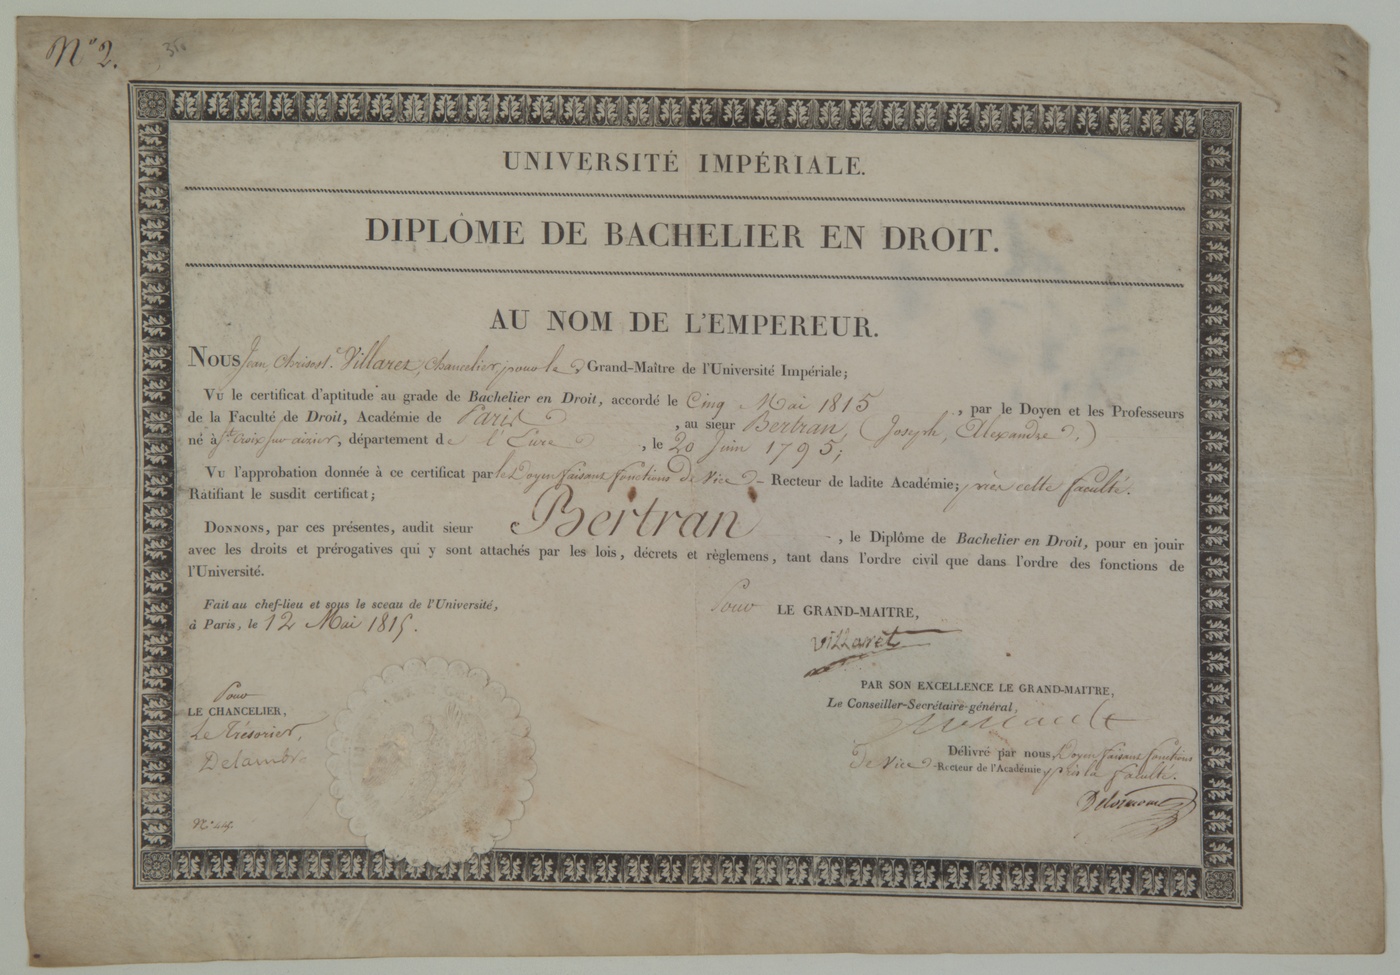 N° 2.
UNIVERSITÉ IMPÉRIALE.
DIPLÔME DE BACHELIER EN DROIT.
AU NOM DE L'EMPEREUR.
NOUS Jean, Chrisost.e Villaret, Chancelier, pour le Grand-Maître de l'Université Impériale;
VU le certificat d'aptitude au grade de Bachelier en Droit, accordé le Cinq Mai 1815, par le Doyen et les Professeurs
de la Faculté de Droit, Académie de Paris, au sieur Bertran, (Joseph, Alexandre,)
né à Ste Croix sur aizier, département de l'Eure, le 20 Juin 1795;
VU l'approbation donnée à ce certificat par le Doyen faisant fonctions de Vice-Recteur de ladite Académie; près cette faculté.
Ratifiant le susdit certificat;
DONNONS, par ces présentes, audit sieur Bertran, le Diplôme de Bachelier en Droit, pour en jouir
avec les droits et prérogatives qui y sont attachés par les lois, décrets et règlemens, tant dans l'ordre civil que dans l'ordre des fonctions de
l'Université.
Fait au chef-lieu et sous le sceau de l'Université,
à Paris, le 12 Mai 1815.
Pour LE GRAND-MAITRE,
Villaret
PAR SON EXCELLENCE LE GRAND-MAITRE,
Le Conseiller-Secrétaire-général,
Pour
LE CHANCELIER,
Le Trésorier,
Delambre
Délivré par nous, Doyen faisant fonctions
de Vice-Recteur de l'Académie, près la faculté.